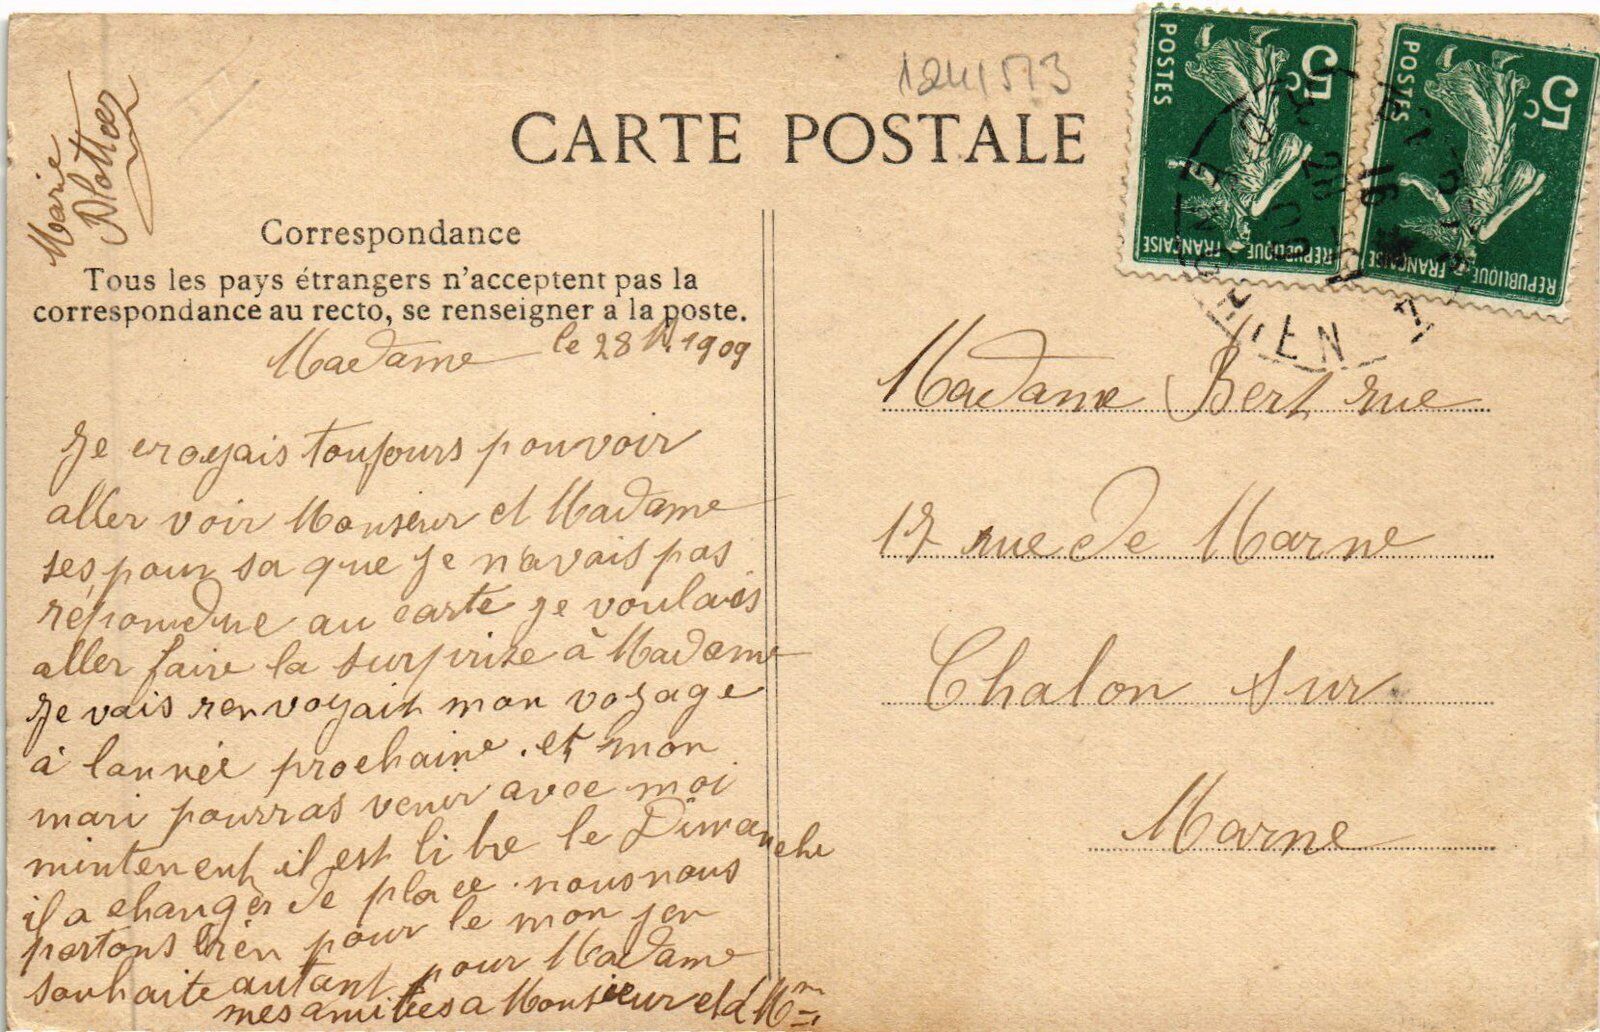 1241513
CARTE POSTALE
5c
POSTES
REPUBLIQUE FRANÇAISE
5c
POSTES
REPUBLIQUE FRANÇAISE
Marie
Correspondance
Tous les pays étrangers n'acceptent pas la
correspondance au recto, se renseigner a la poste.
Madame le 28 1909
Je croyais toujours pouvoir
aller voir Monseur et Madame
ses pour sa que je n'avais pas
répondue au carte je voulais
aller faire la surprise à Madame
Je vais renvoyait mon voyage
à lannée prochaine. et mon
mari pourras venir avec moi
mintenent il est libre le Dimanche
il a changer de place. nous nous
portons bien pour le mon jen
souhaite autant pour Madame
mes amitiées a Monsieur et à Mme
Madame Bert rue
17 rue de Marne
Chalon sur
Marne